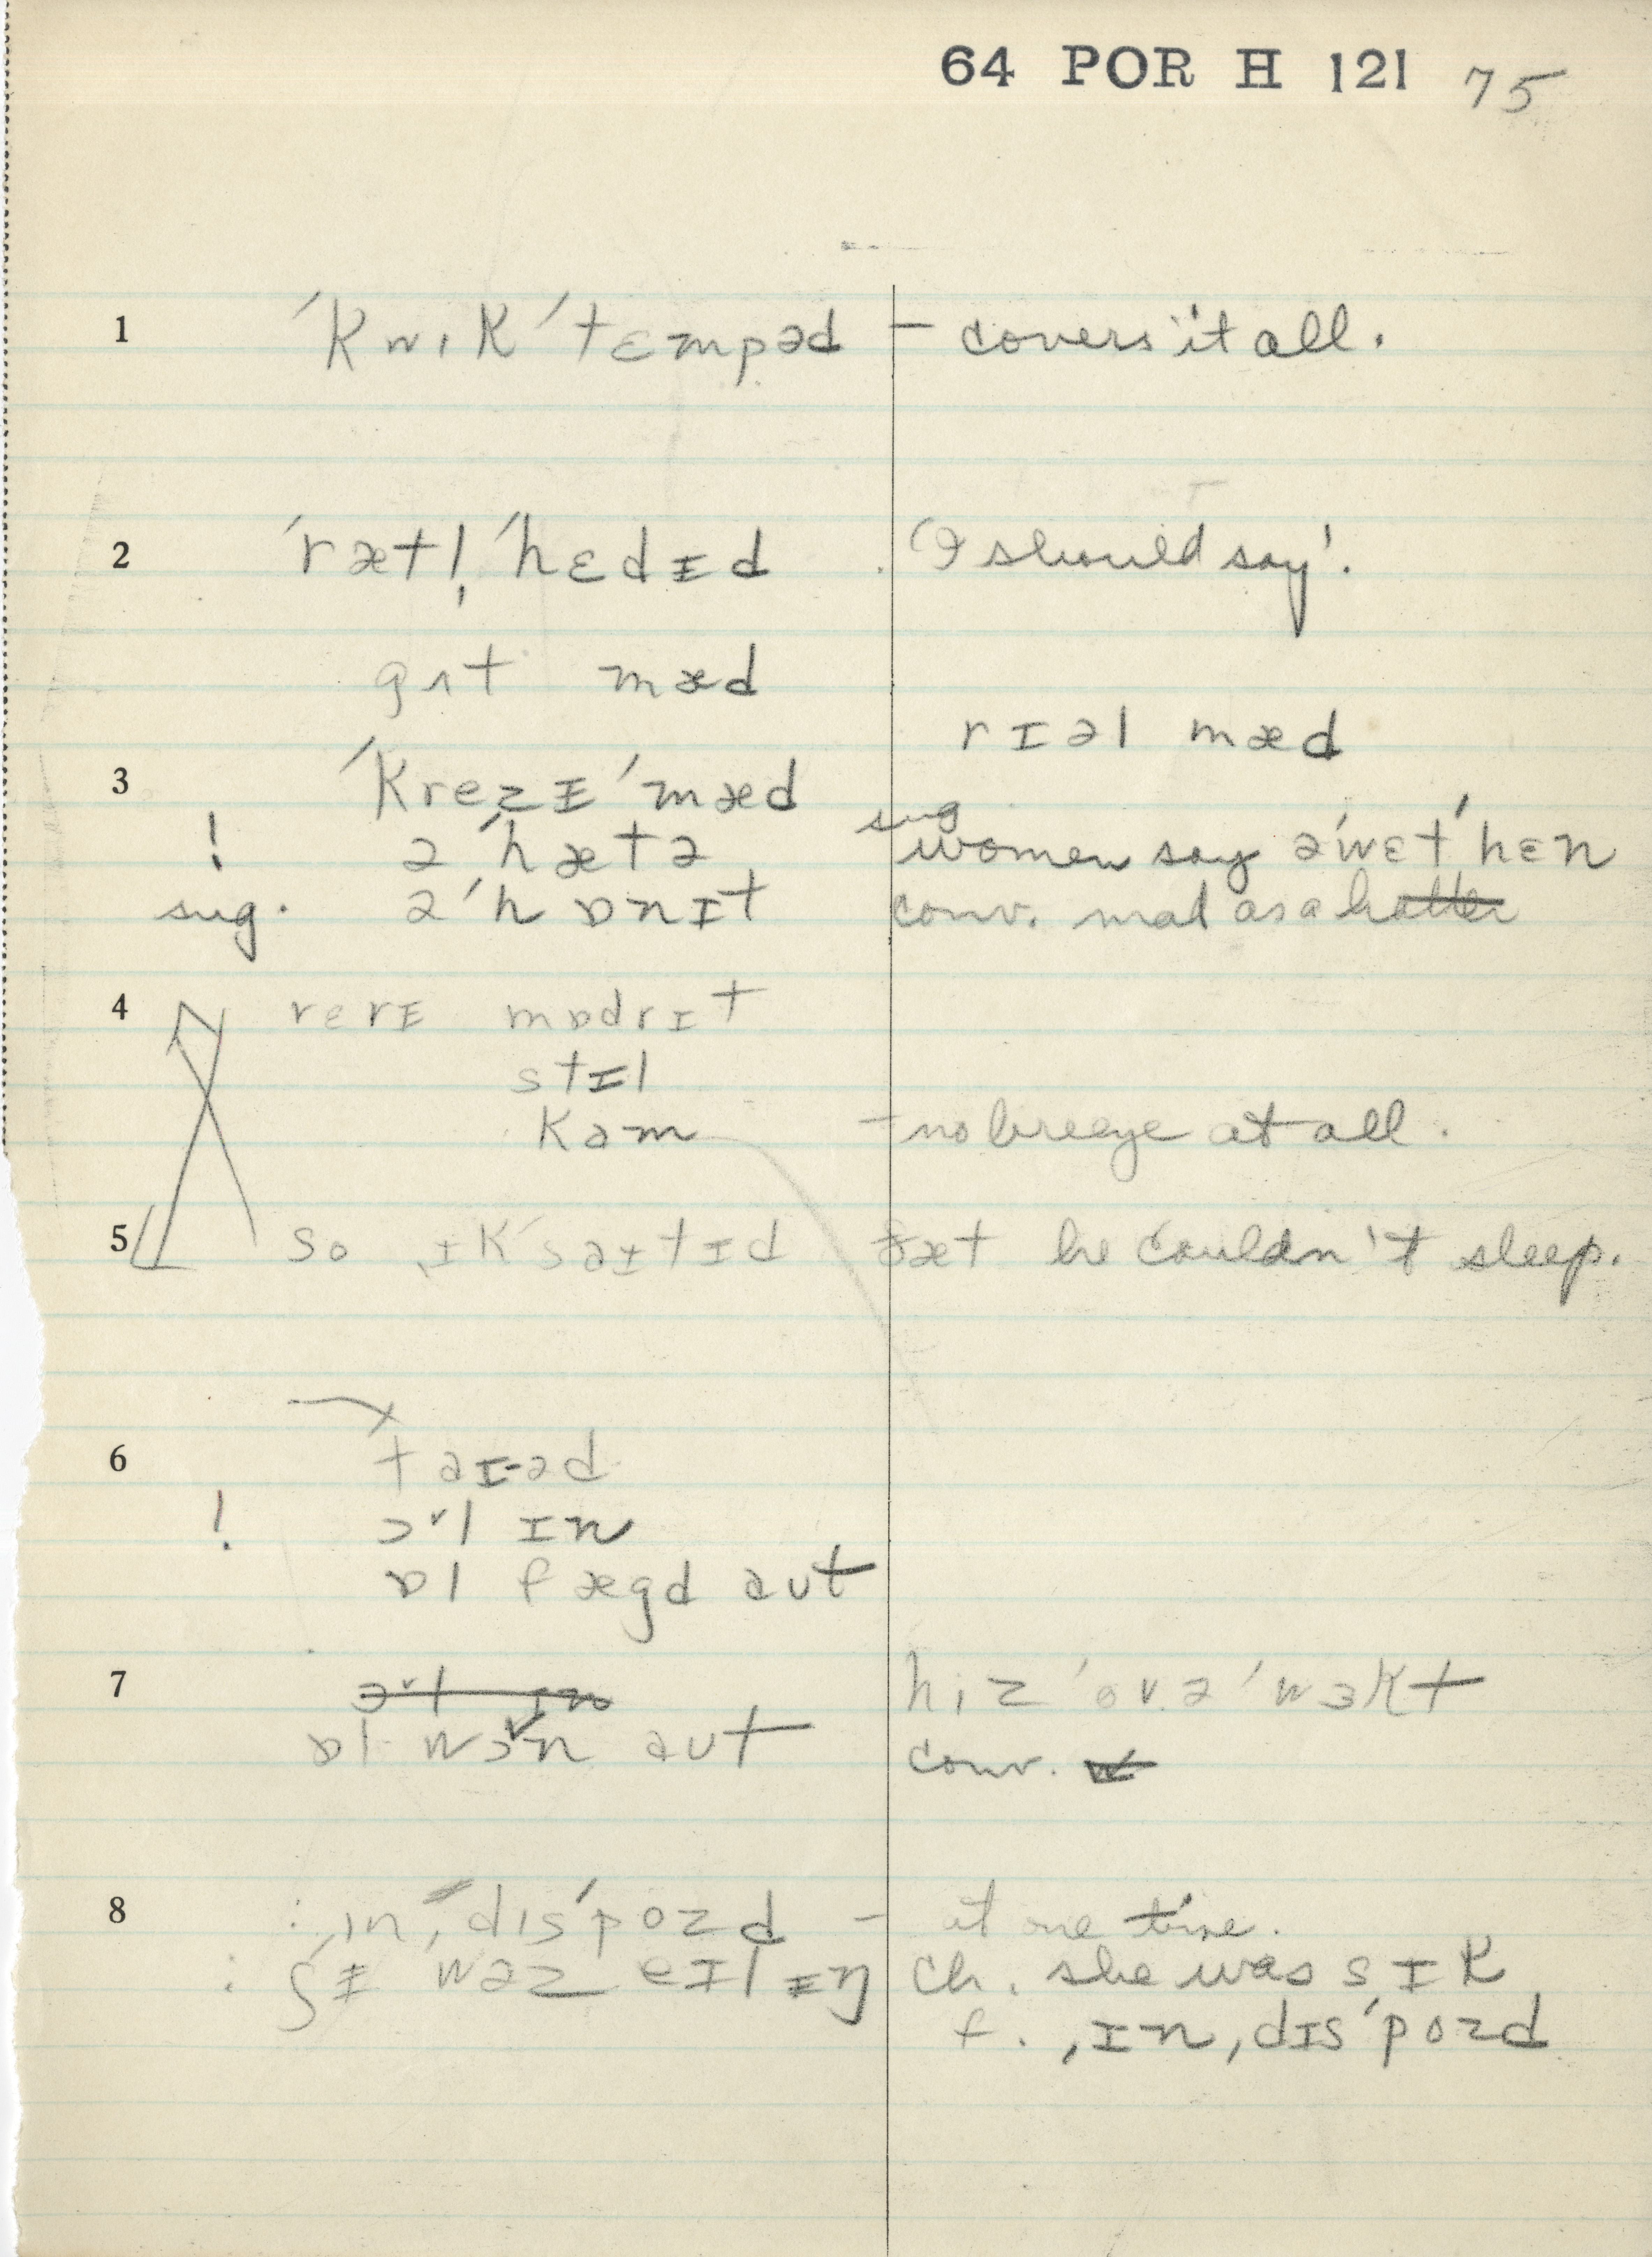 64 POR H 121 75
1 ˈkwɪk ˈtɛmpəd – covers it all.
2 ˈrætl̩ ˈhɛdɪd . 'I should say'!
gɪt mæd
rɪəl mæd
3 ˈkrezɪ ˈmæd
! ə ˈhætə sug women say ə ˈwɛt ˈhɛn
sug. ə ˈhɒnɪt conv. mad as a hatter
4 rerɪ mɒdrɪt
stɪl
kam – no breeze at all.
5 so ˌɪkˈsaɪtɪd ðæt he couldn't sleep.
6 taɪəd
! ɔˇl ɪn
ɒl fægd aut
7 ɔˇl ɪn hiz ˈovə ˈwɜkt
ɒl wɔˇn aut conv. w
8 : ˌɪn ˌdɪsˈpozd – at one time.
: ʃɪ wəz eɪlɪŋ ch. she was sɪk
f. ˌɪn ˌdɪsˈpozd